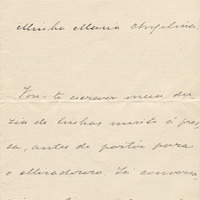 Minha Maria Angelina
Vou-te escrever meia du
zia de linhas muito á pres
sa, antes de partir para
o Miradouro. Já conversa